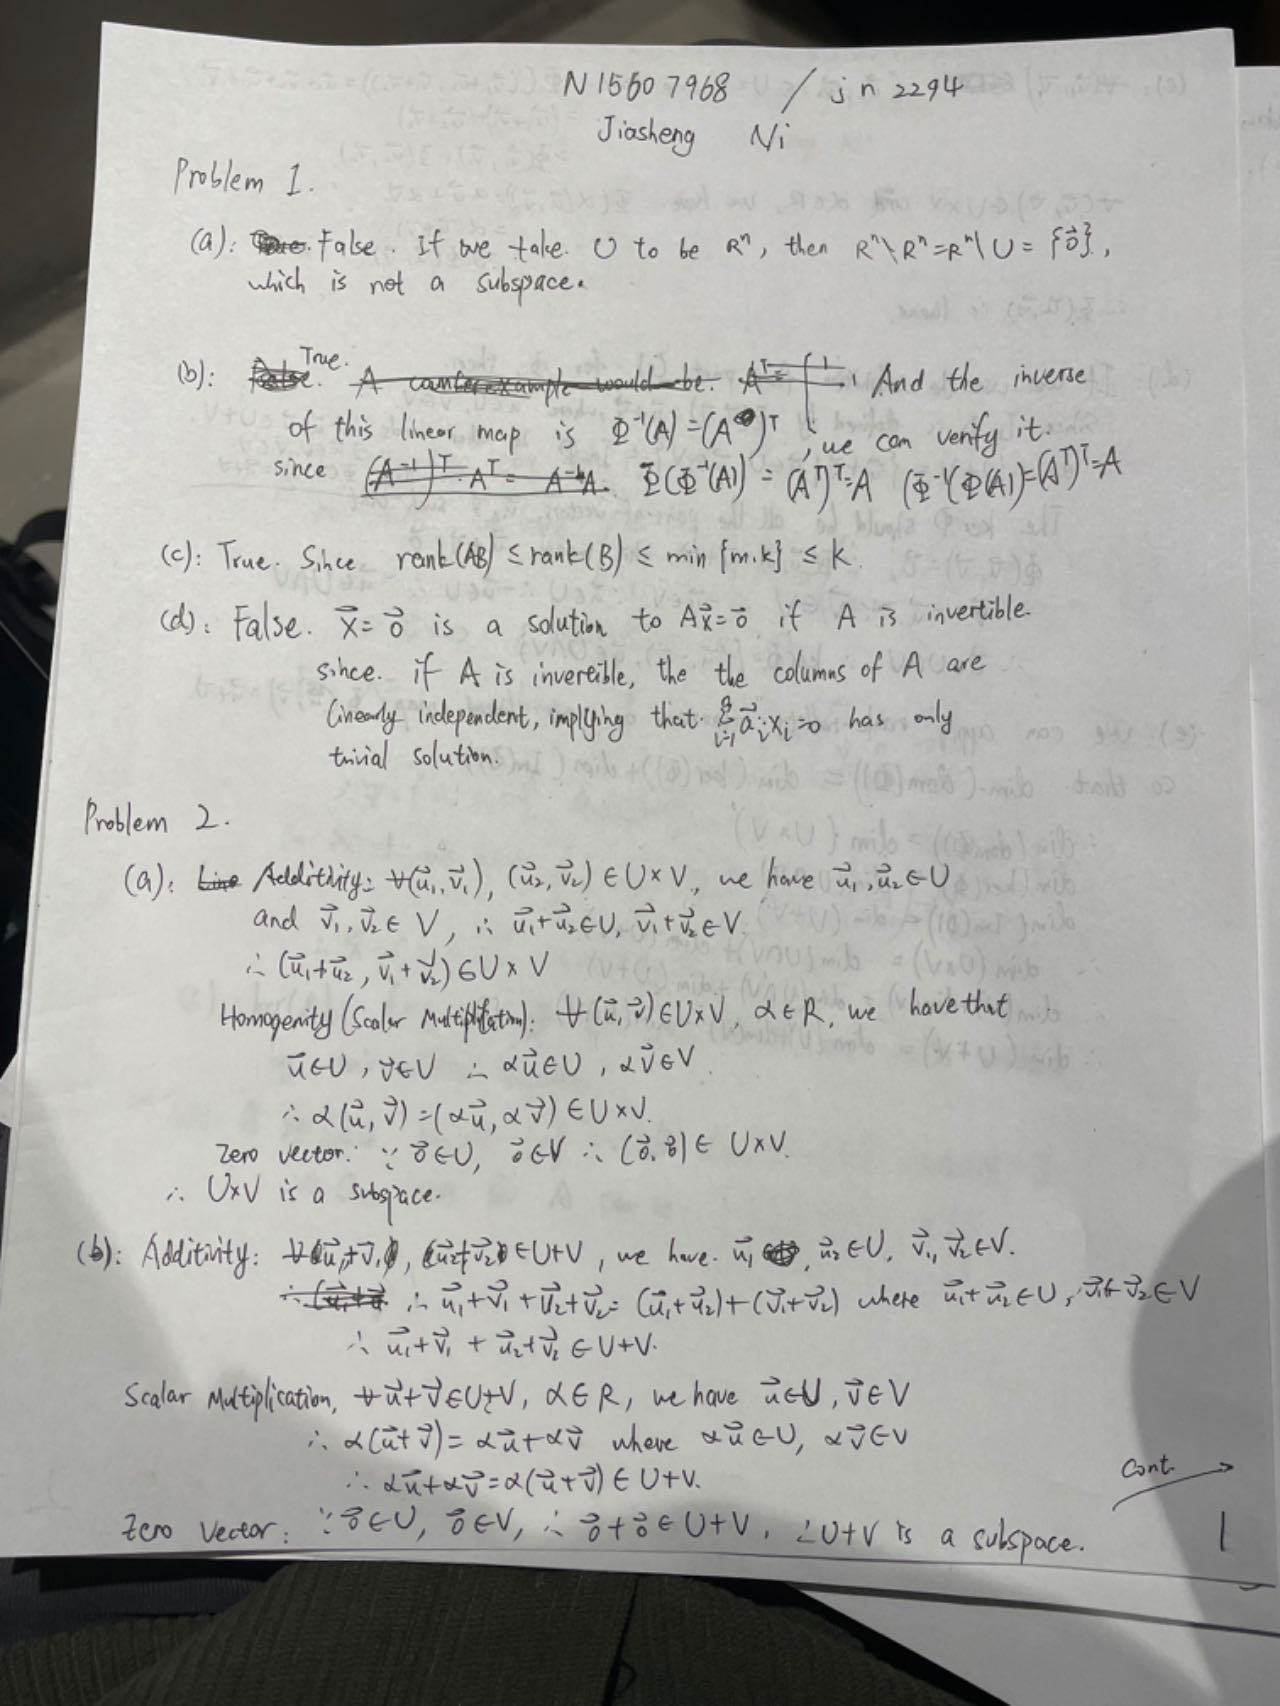 N15607968 / jn2294
Jiasheng Ni
Problem 1.
(a): False. If we take U to be Rⁿ, then Rⁿ\Rⁿ=Rⁿ\U = {0⃗},
which is not a subspace.
(b): True. A counterexample would be. Aᵀ= And the inverse
of this linear map is Φ⁻¹(A) = (A)ᵀ, we can verify it.
since (A⁻¹)ᵀ·Aᵀ= A⁻¹A. Φ(Φ⁻¹(A)) = (Aᵀ)ᵀ=A (Φ⁻¹(Φ(A))=(Aᵀ)ᵀ=A
(c): True. Since rank(AB) ≤ rank(B) ≤ min {m.k} ≤ k.
(d): False. x⃗=0⃗ is a solution to Ax⃗=0⃗ if A is invertible.
since. if A is invertible, the the columns of A are
linearly independent, implying that a⃗ᵢxᵢ=0 has only
trivial solution.
Problem 2.
(a): Line Additivity: ∀(u⃗₁,v⃗₁), (u⃗₂,v⃗₂) ∈ U×V, we have u⃗₁,u⃗₂∈U
and v⃗₁,v⃗₂∈ V, ∴ u⃗₁+u⃗₂∈U, v⃗₁+v⃗₂∈V.
∴ (u⃗₁+u⃗₂, v⃗₁+v⃗₂)∈U×V
Homogenity (Scalar Multiplication): ∀(u⃗,v⃗)∈U×V, α∈R, we have that
u⃗∈U, v⃗∈V ∴ αu⃗∈U, αv⃗∈V.
∴ α(u⃗,v⃗)=(αu⃗,αv⃗)∈U×V.
Zero vector: ∵ 0⃗∈U, 0⃗∈V ∴ (0⃗,0⃗)∈ U×V.
∴ U×V is a subspace.
(b): Additivity: ∀u⃗₁+v⃗₁, u⃗₂+v⃗₂∈U+V, we have. u⃗₁, u⃗₂∈U, v⃗₁,v⃗₂∈V.
∴ u⃗₁+v⃗₁+u⃗₂+v⃗₂= (u⃗₁+u⃗₂)+(v⃗₁+v⃗₂) where u⃗₁+u⃗₂∈U, v⃗₁+v⃗₂∈V
∴ u⃗₁+v⃗₁ + u⃗₂+v⃗₂ ∈U+V.
Scalar Multiplication, ∀u⃗+v⃗∈U+V, α∈R, we have u⃗∈U, v⃗∈V
∴ α(u⃗+v⃗)= αu⃗+αv⃗ where αu⃗∈U, αv⃗∈V
∴ αu⃗+αv⃗=α(u⃗+v⃗)∈U+V.
Cont. →
Zero Vector: ∵0⃗∈U, 0⃗∈V, ∴ 0⃗+0⃗∈U+V. ∴U+V is a subspace.
1